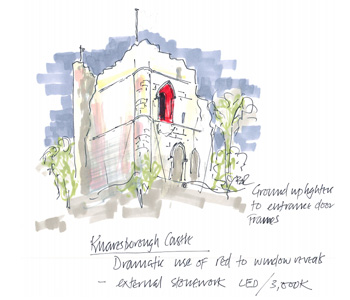 Ground uplighters
to entrance door
frames
Knaresborough Castle
Dramatic use of red to window reveals
- external stonework LED / 3,000K